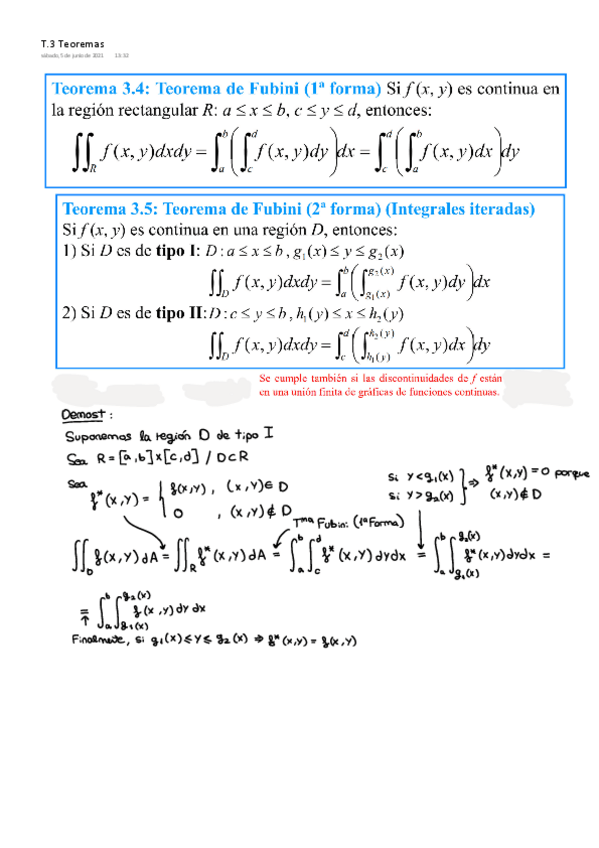 T.3 Teoremas
sábado, 5 de junio de 2021 13:32
Teorema 3.4: Teorema de Fubini (1ª forma) Si f (x, y) es continua en
la región rectangular R: a ≤ x ≤ b, c ≤ y ≤ d, entonces:
∬_R f(x, y)dxdy = ∫_a^b (∫_c^d f(x, y)dy)dx = ∫_c^d (∫_a^b f(x, y)dx)dy
Teorema 3.5: Teorema de Fubini (2ª forma) (Integrales iteradas)
Si f (x, y) es continua en una región D, entonces:
1) Si D es de tipo I: D : a ≤ x ≤ b , g₁(x) ≤ y ≤ g₂(x)
∬_D f(x, y)dxdy = ∫_a^b (∫_{g₁(x)}^{g₂(x)} f(x, y)dy)dx
2) Si D es de tipo II: D : c ≤ y ≤ b , h₁(y) ≤ x ≤ h₂(y)
∬_D f(x, y)dxdy = ∫_c^d (∫_{h₁(y)}^{h₂(y)} f(x, y)dx)dy
Se cumple también si las discontinuidades de f están
en una unión finita de gráficas de funciones continuas.
Demost :
Suponemos la región D de tipo I
Sea R = [a,b]x[c,d] / D⊂R
Sea f*(x,y) = { f(x,y) , (x,y)∈ D
0 , (x,y)∉ D
si y<g₁(x)
si y>g₂(x) } ⇒ f*(x,y) = 0 porque
(x,y)∉ D
Tma Fubini (1ª Forma)
∬_D f(x,y) dA = ∬_R f*(x,y) dA = ∫_a^b ∫_c^d f*(x,y) dy dx = ∫_a^b ∫_{g₁(x)}^{g₂(x)} f*(x,y) dy dx =
= ∫_a^b ∫_{g₁(x)}^{g₂(x)} f(x,y) dy dx
Finalmente, si g₁(x) ≤ y ≤ g₂(x) ⇒ f*(x,y) = f(x,y)